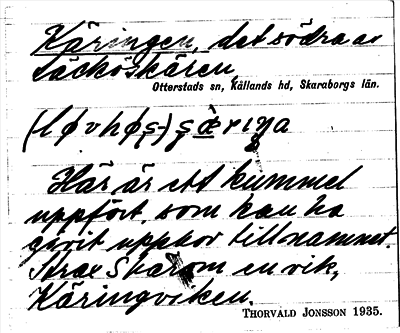 Käringen, det södra av
Läcköskären
Otterstads sn, Kållands hd, Skaraborgs län.
(løvhøʂ-) ʂæ̀rıŋa
Här är ett kummel
uppfört, som kan ha
givit upphov till namnet.
Strax S härom en vik,
Käringviken.
THORVALD JONSSON 1935.